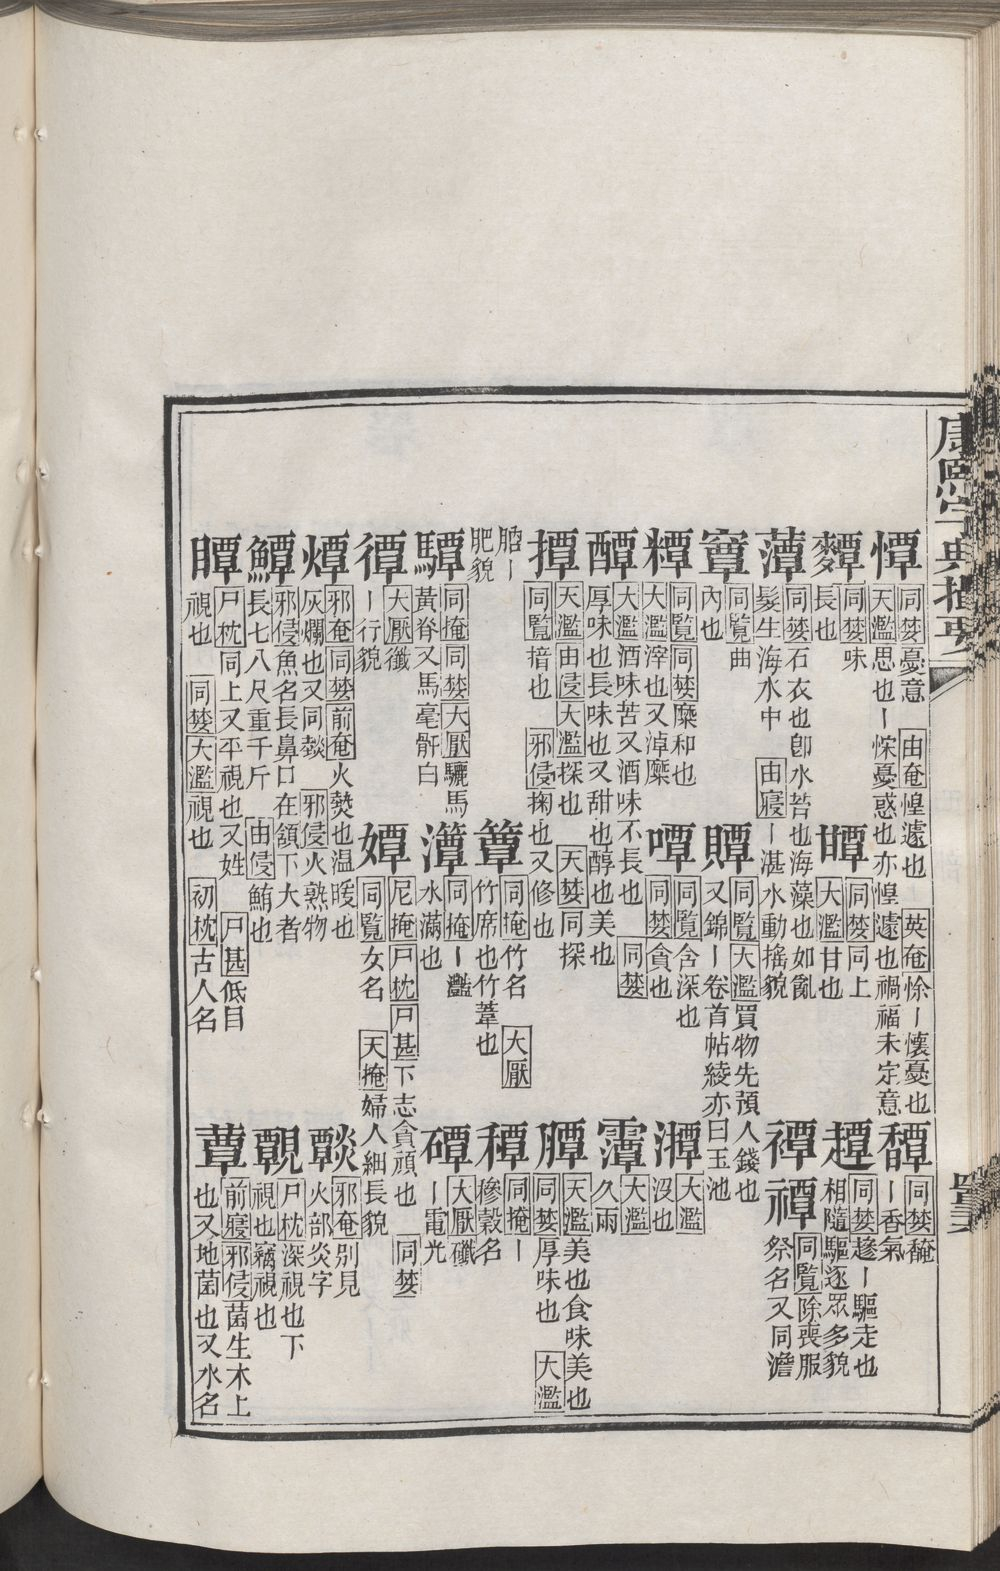 康熙字典撮要
憛 同婪憂意 由奄惶遽也 英奄悇ー懷憂也
天濫思也ー悇憂惑也亦惶遽也禍福未定意
馣 同婪馣
ー香氣
䵊 同婪味
長也
𤯍 同婪同上
大濫甘也
趯 同婪趁ー驅走也
相隨驅逐眾多貌
薚 同婪石衣也卽水苔也海藻也如亂
髮生海水中 由寢ー湛水動搖貌
禫 禫 同覽除喪服
祭名又同澹
竷 同覽曲
內也
贉 同覽大濫買物先預人錢也
又錦ー卷首帖綾亦曰玉池
糣 同覽同婪糜和也
大濫滓也又淖糜
嘾 同覽含深也
同婪貪也
潭 大濫
沒也
醰 大濫酒味苦又酒味不長也 同婪
厚味也長味也又甜也醇也美也
霮 大濫
久雨
撢 天濫由侵大濫探也 天婪同探
同覽揞也 邪侵掬也又修也
膻 天濫美也食味美也
同婪厚味也 大濫
䐺ー
肥貌
簟 同掩竹名 大厭
竹席也竹葦也
穆 同掩ー
穇穀名
驔 同掩同婪大厭驪馬
黃脊又馬毫骭白
灊 同掩ー灩
水滿也
磹 大厭礷
ー電光
𢕮 大厭㣲
ー行貌
嬋 尼掩尸枕尸甚下志貪頑也 同婪
同覽女名 天掩婦人細長貌
燂 邪奄同婪前奄火爇也温暖也
灰爛也又同燅 邪侵火熟物
燅 邪奄別見
火部炎字
鱏 邪侵魚名長鼻口在頷下大者
長七八尺重千斤 由侵鮪也
覃 尸枕深視也下
視也竊視也
瞫 尸枕同上又平視也又姓 尸甚低目
視也 同婪大濫視也 初枕古人名
蕈 前寢邪侵菌生木上
也又地菌也又水名